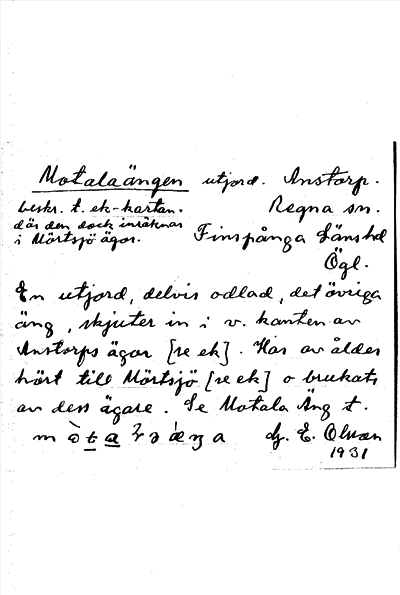 Motalaängen utjord. Anstorp.
beskr. t. ek-kartan. Regna sn.
där den dock inräknas
i Mörtsjö ägor. Finspånga Länshd
Ögl.
En utjord, delvis odlad, det övriga
äng, skjuter in i v. kanten av
Anstorps ägor [se ek]. Har av ålder
hört till Mörtsjö [se ek] o brukats
av dess ägare. Se Motala Äng t.
G. E. Olsson
1931